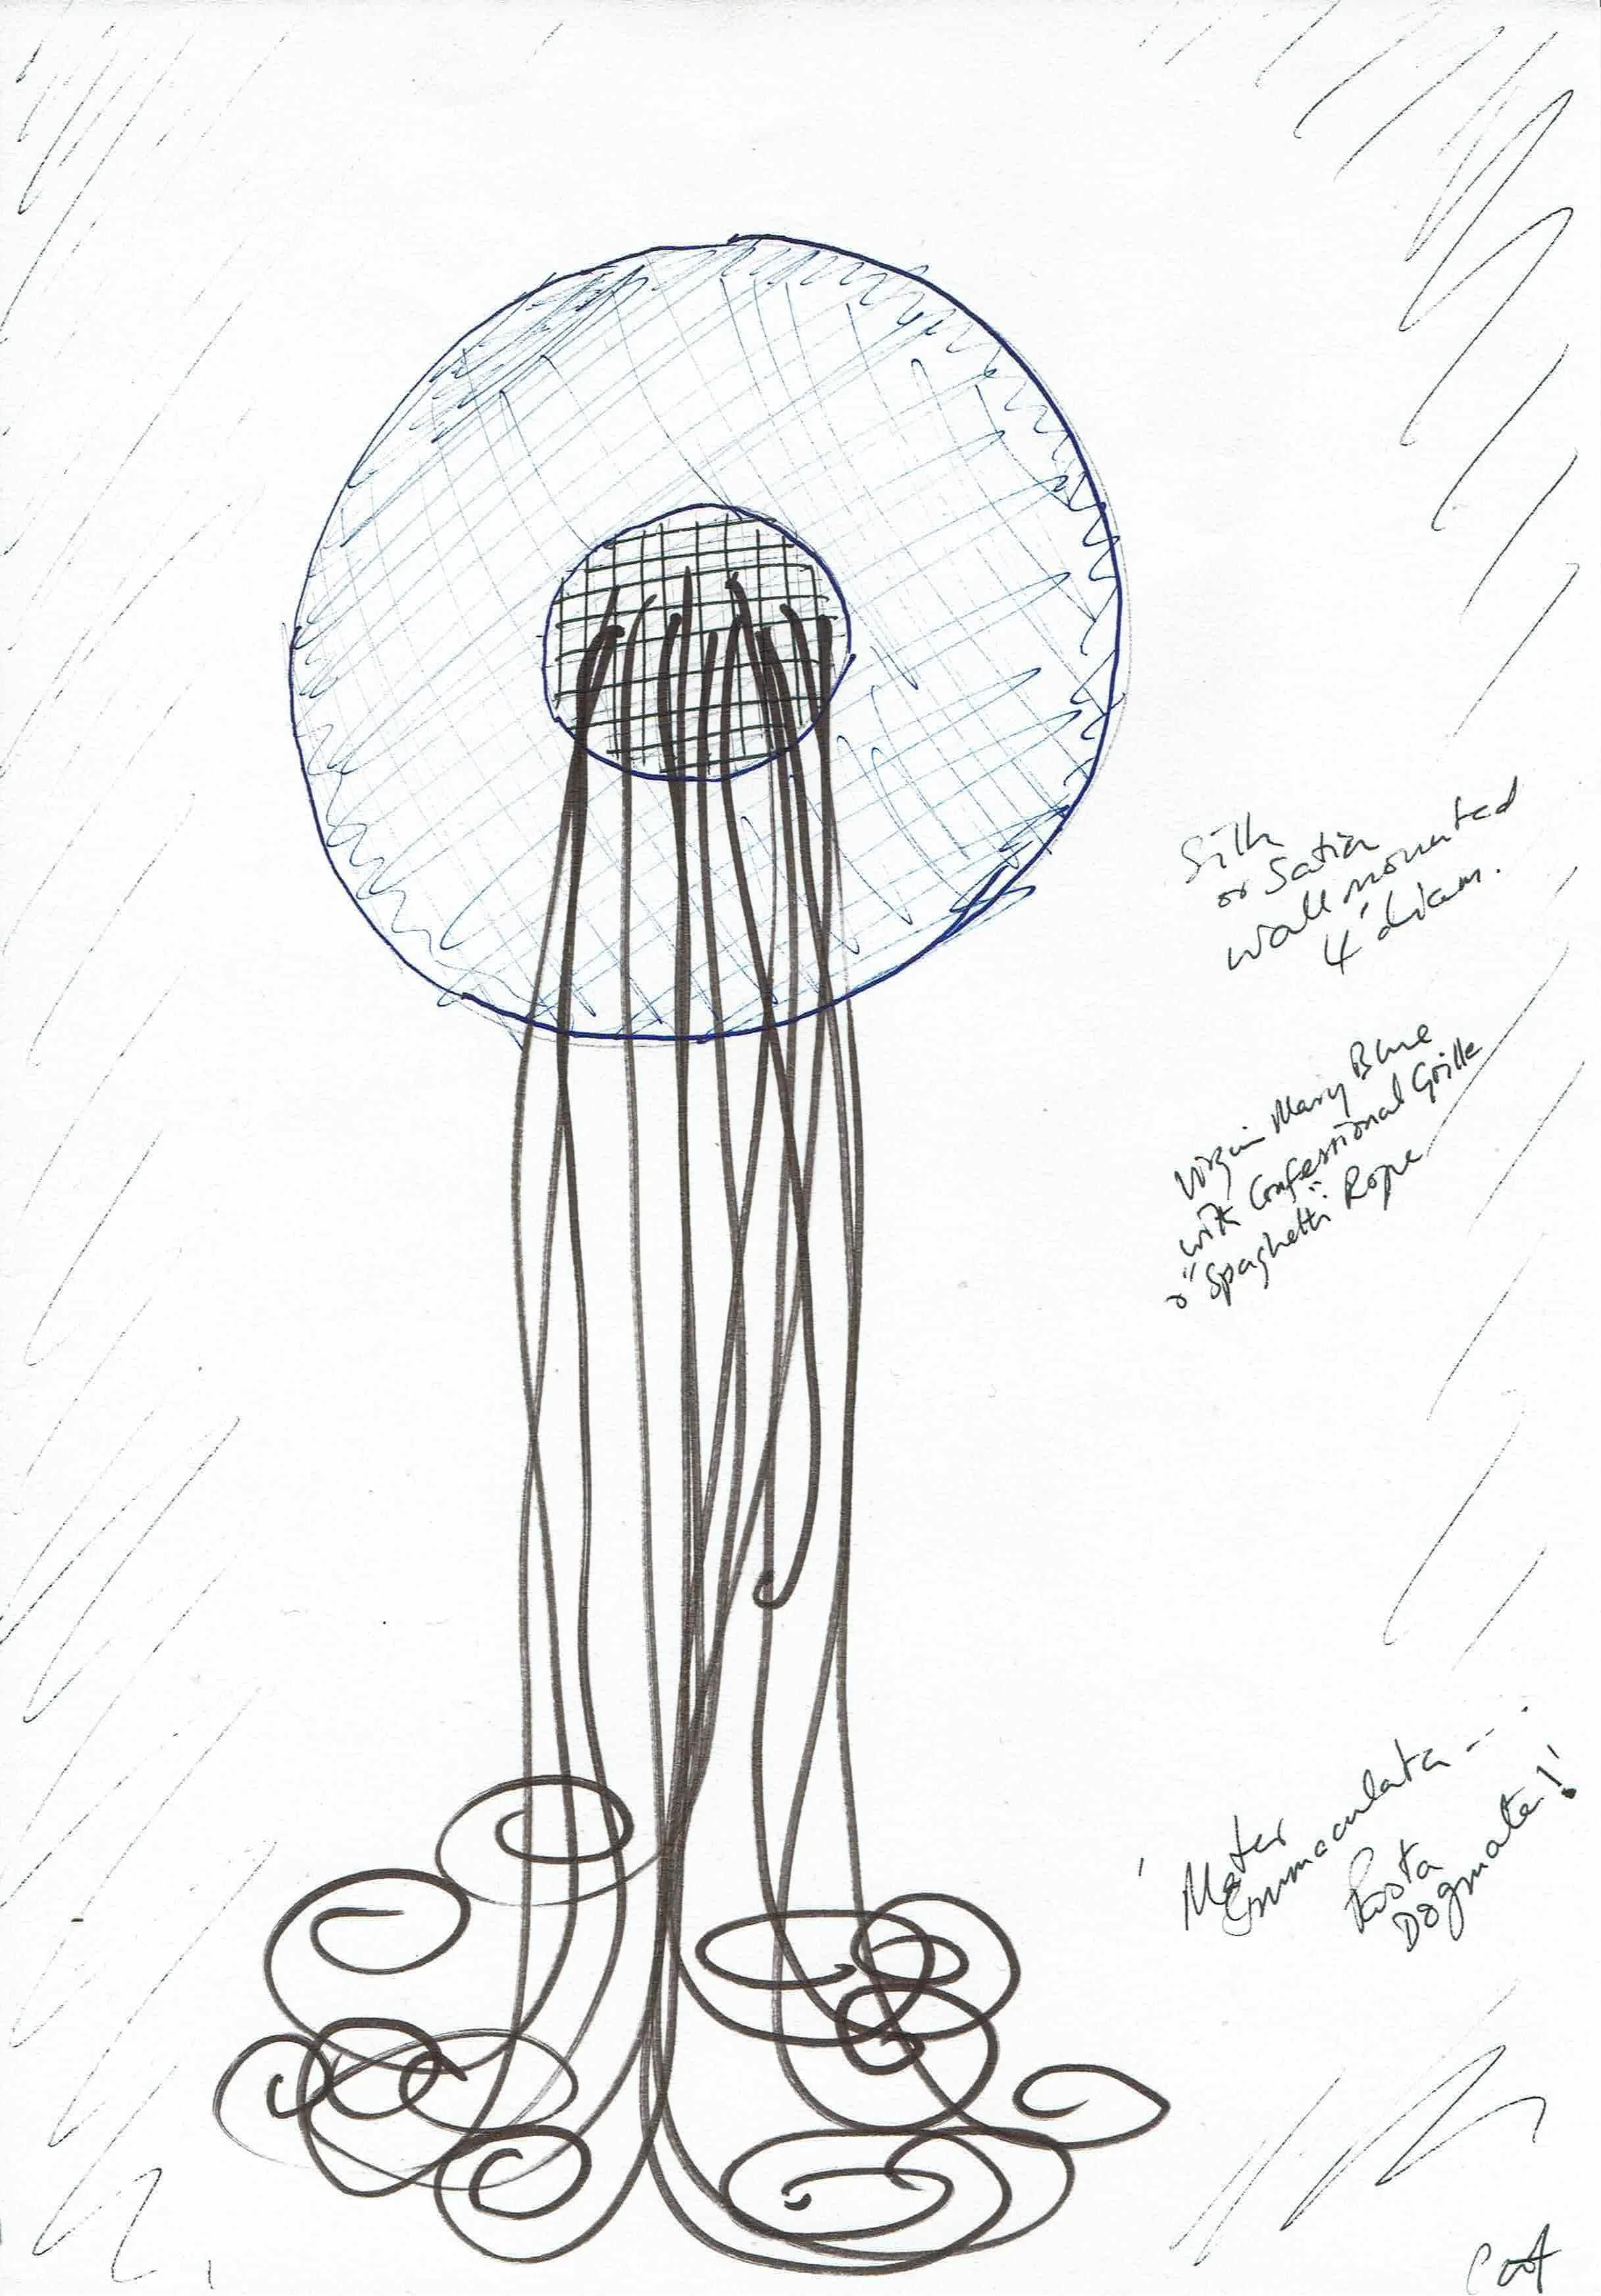 Silk
or Satin
wall mounted
4' diam.
Virgin Mary Blue
with Confessional Grille
& "Spaghetti" Rope
'Mater
Emmaculata --.
Pasta
Dogmata!
Cat